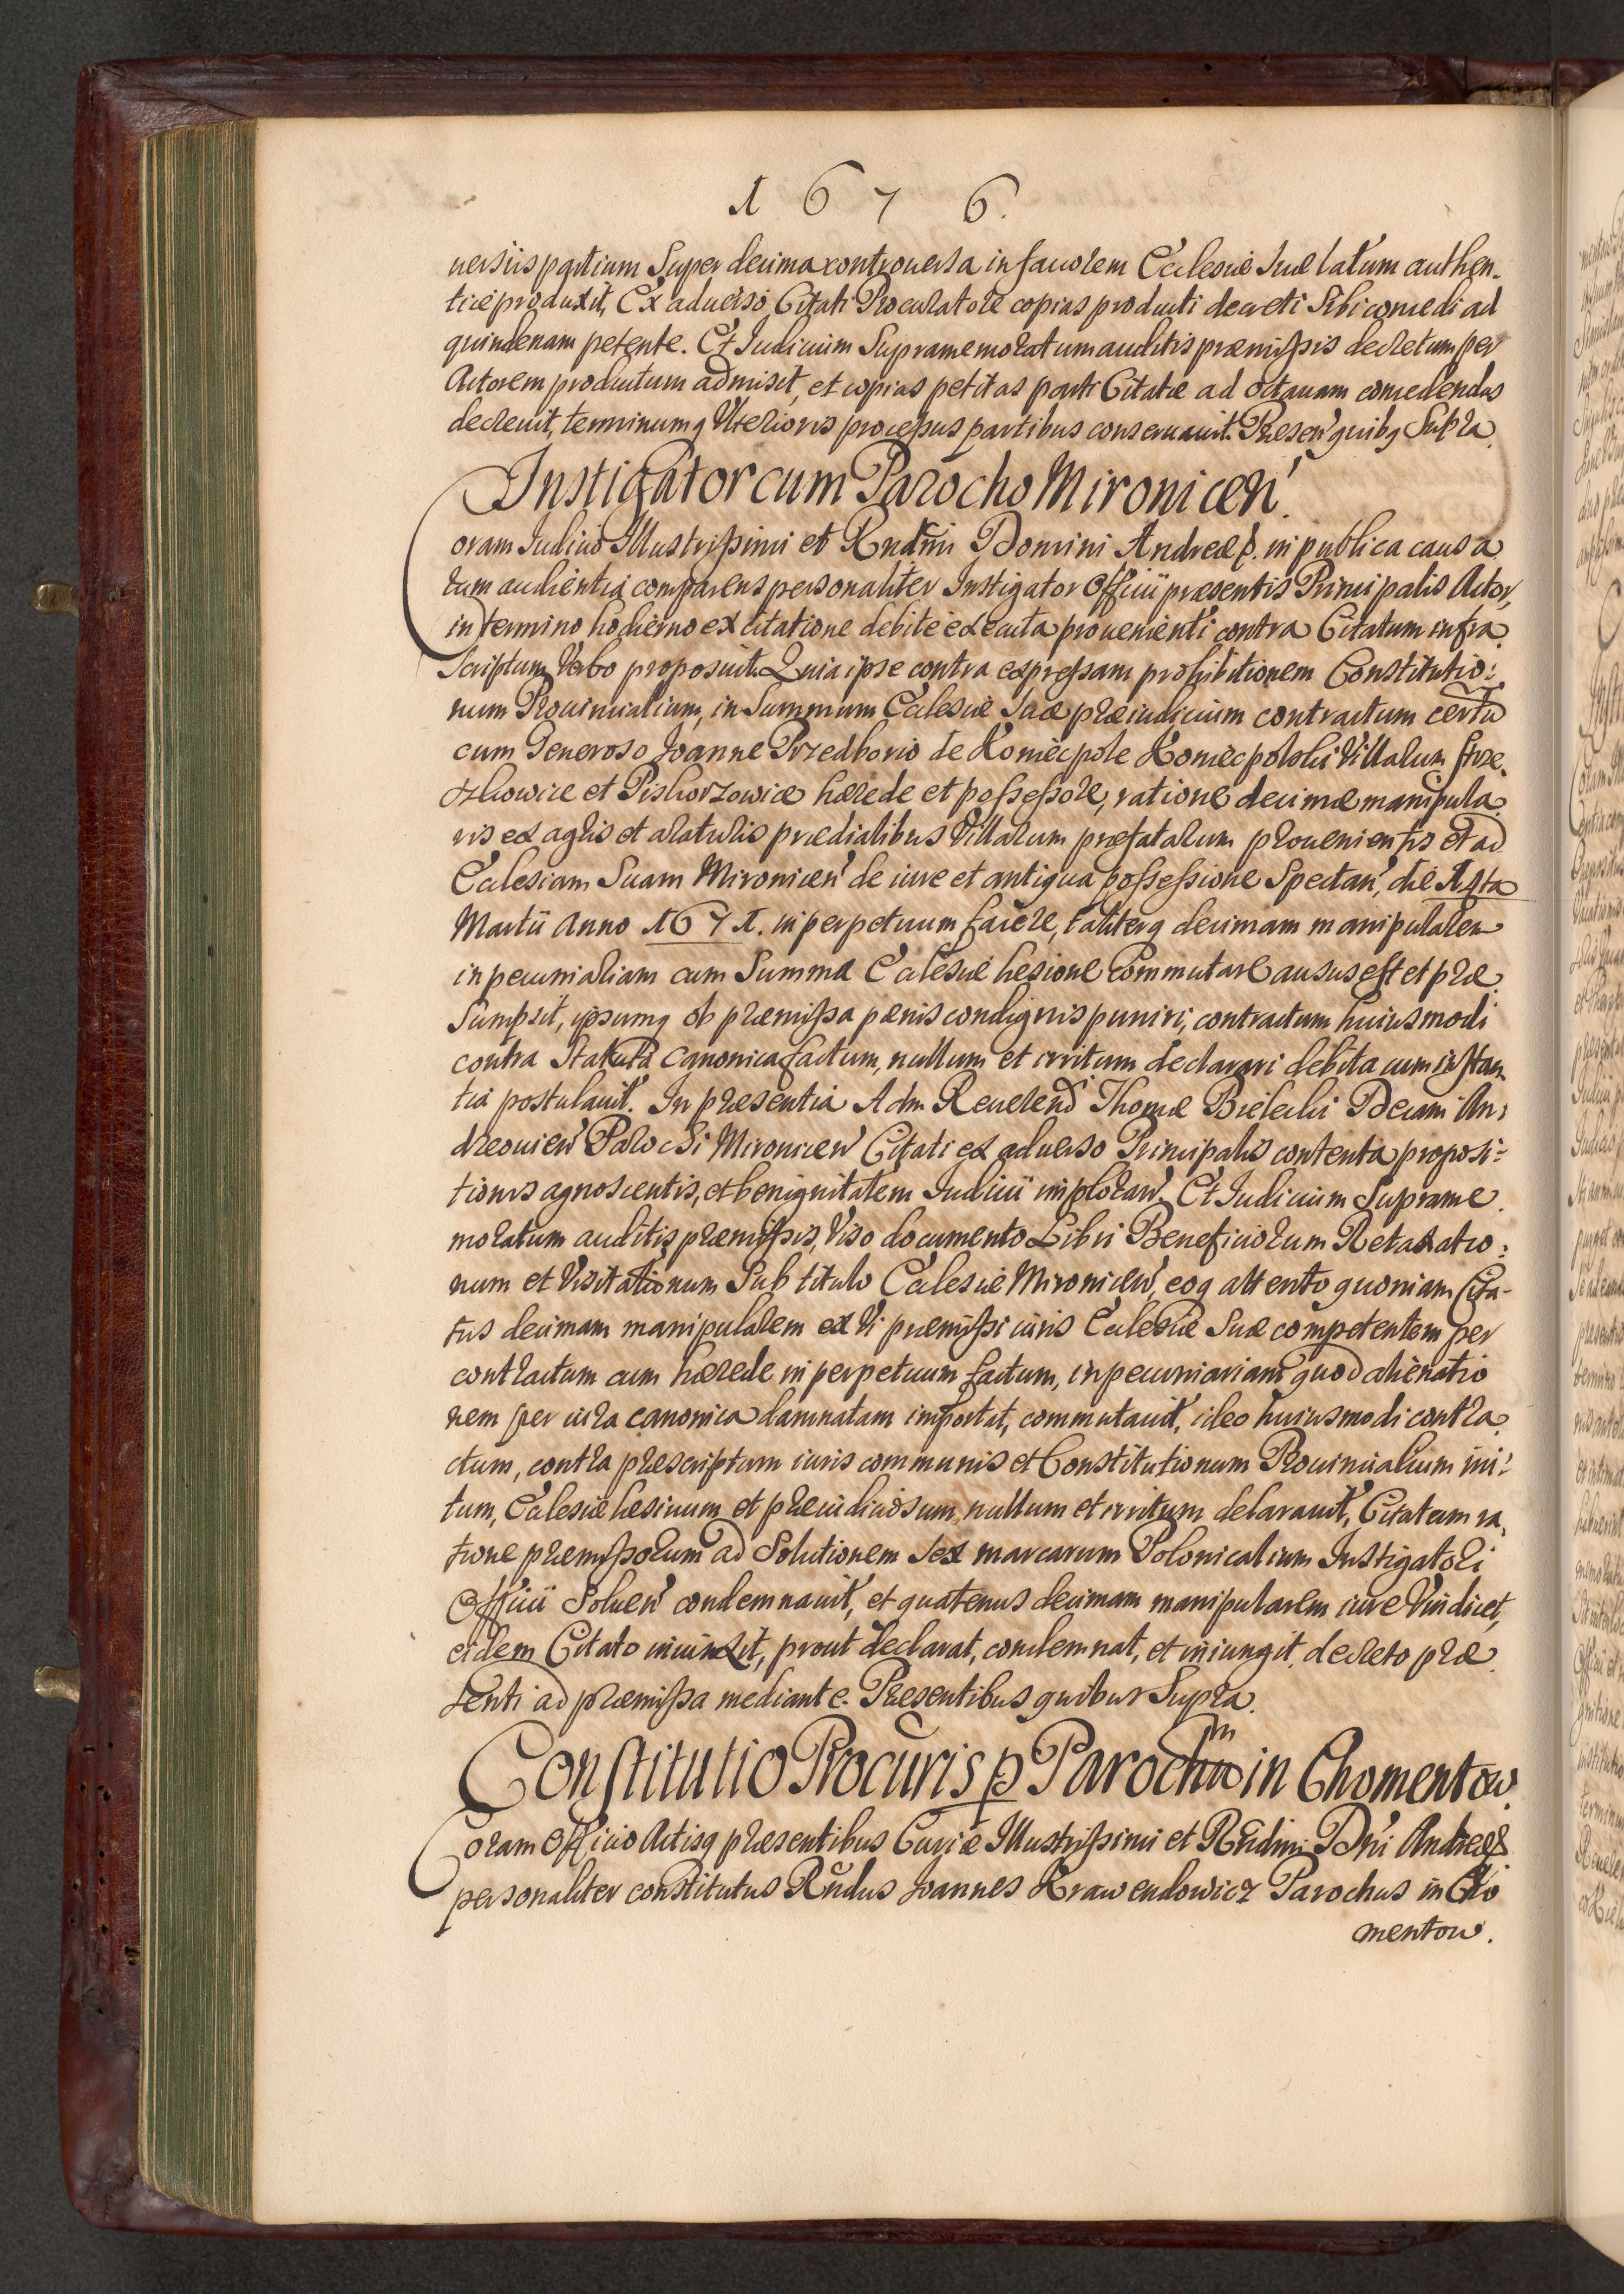 1676.
uersiis partium Super decima controuersa in fauorem Ecclesiæ Suæ latum authen-
ticè produxit, Ex aduerso Citati Procuratore copias producti decreti Sibi concedi ad
quindenam petente. Et Iudicium Supramemoratum auditis præmissis decretum per
Actorem productum admisit, et copias petitas parti Citatæ ad octauam concedendas
decreuit, terminumq Ulterioris processus partibus conseruauit. Presen' quibq Supra.
Instigator cum Parocho Mironicen'.
Coram Iudicio Illustrissimi et Rndmi Domini Andreæ p. in publica causa
rum audientia comparens personaliter Instigator Officii præsentis Principalis Actor,
in termino hodierno ex citatione debitè executa prouenienti contra Citatum infra
Scriptum Verbo proposuit. Quia ipse contra expressam prohibitionem Constitutio:
num Prouincialium, in Summum Ecclesiæ Suæ præiudicium contractum certu
cum Generoso Joanne Przedborio de Koniecpole Koniecpolski Villarum
et Piskorzowice hærede et possessore, ratione decimæ manipula
ris ex agris et araturis prædialibus Villarum præfatarum prouenientis et ad
Ecclesiam Suam Mironicen' de iure et antiqua possessione Spectan', die 14ta
Martii Anno 1671. in perpetuum facere, taliterq decimam manipularem
in pecuniariam cum Summa Ecclesiæ læsione commutare ausus est et præ
Sumpsit, ipsumq ob præmissa pænis condignis puniri, contractum huiusmodi
contra Statuta canonica factum, nullum et irritum declarari debita cum instan
tia postulauit. In præsentia Adm Reuerend' Thomæ Bielecki Decani An:
dreouien' Parochi Mironicen' Citati ex aduerso Principalis contenta proposi:
tionis agnoscentis, et benignitatem Iudicii imploran'. Et Iudicium Suprame
moratum auditis præmissis, Viso documento Libri Beneficiorum Retaxatio:
num et Visitationum Sub titulo Ecclesiæ Mironicen', eoq attento quoniam Cita-
tus decimam manipularem ex Vi præmissi iuris Ecclesiæ Suæ competentem per
contractum cum hærede in perpetuum factum, in pecuniariam quod alienatio
nem per iura canonica damnatam importat, commutauit, ideo huiusmodi contra
ctum, contra præscriptum iuris communis et Constitutionum Prouincialium ini:
tum, Ecclesiæ læsiuum et præiudiciosum, nullum et irritum delarauit, Citatum ra,
tione præmissorum ad Solutionem Sex marcarum Polonicalium Instigatori
Officii Soluen' condemnauit, et quatenus decimam manipularem iure Vindicet,
eidem Citato iniunxit, prout declarat, condemnat, et iniungit, decreto præ
senti ad præmissa mediante. Præsentibus quibus Supra.
Constitutio Procuris p Parochum in Chomentow.
Coram Officio Actisq præsentibus Curiæ Illustrissimi et Rndmi Dni Andreæ p
personaliter constitutus Rndus Joannes Krawendowicz Parochus in Cho
mentow.